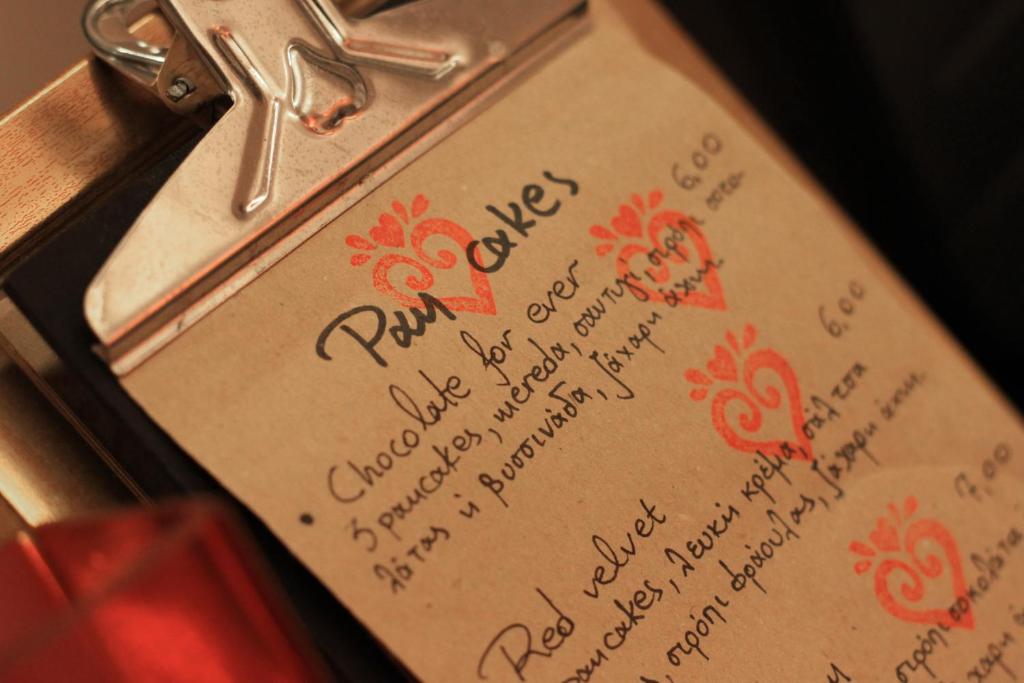 Pan cakes
• Chocolate for ever 6,00
3 pancakes, mereda, σαντιγί, σιρόπι σοκο-
λάτας ή βυσσινάδα, ζάχαρη άχνη.
Red velvet 6,00
pancakes, λευκή κρέμα, σάλτσα
σιρόπι φράουλας, ζάχαρη άχνη.
7,00
σιρόπι σοκολάτα